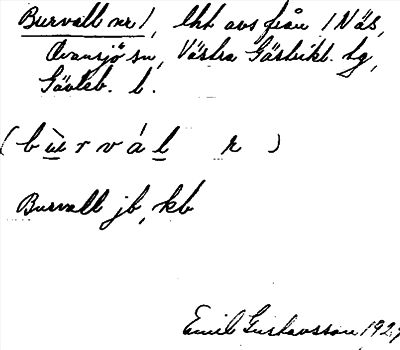 Burvall nr 1, lht avs från 1 Näs,
Ovansjö sn, Västra Gästrikl. tg,
Gävleb. l.
(bu̱̇rváḻ r)
Burvall jb, kb
Emil Gustavsson 1927